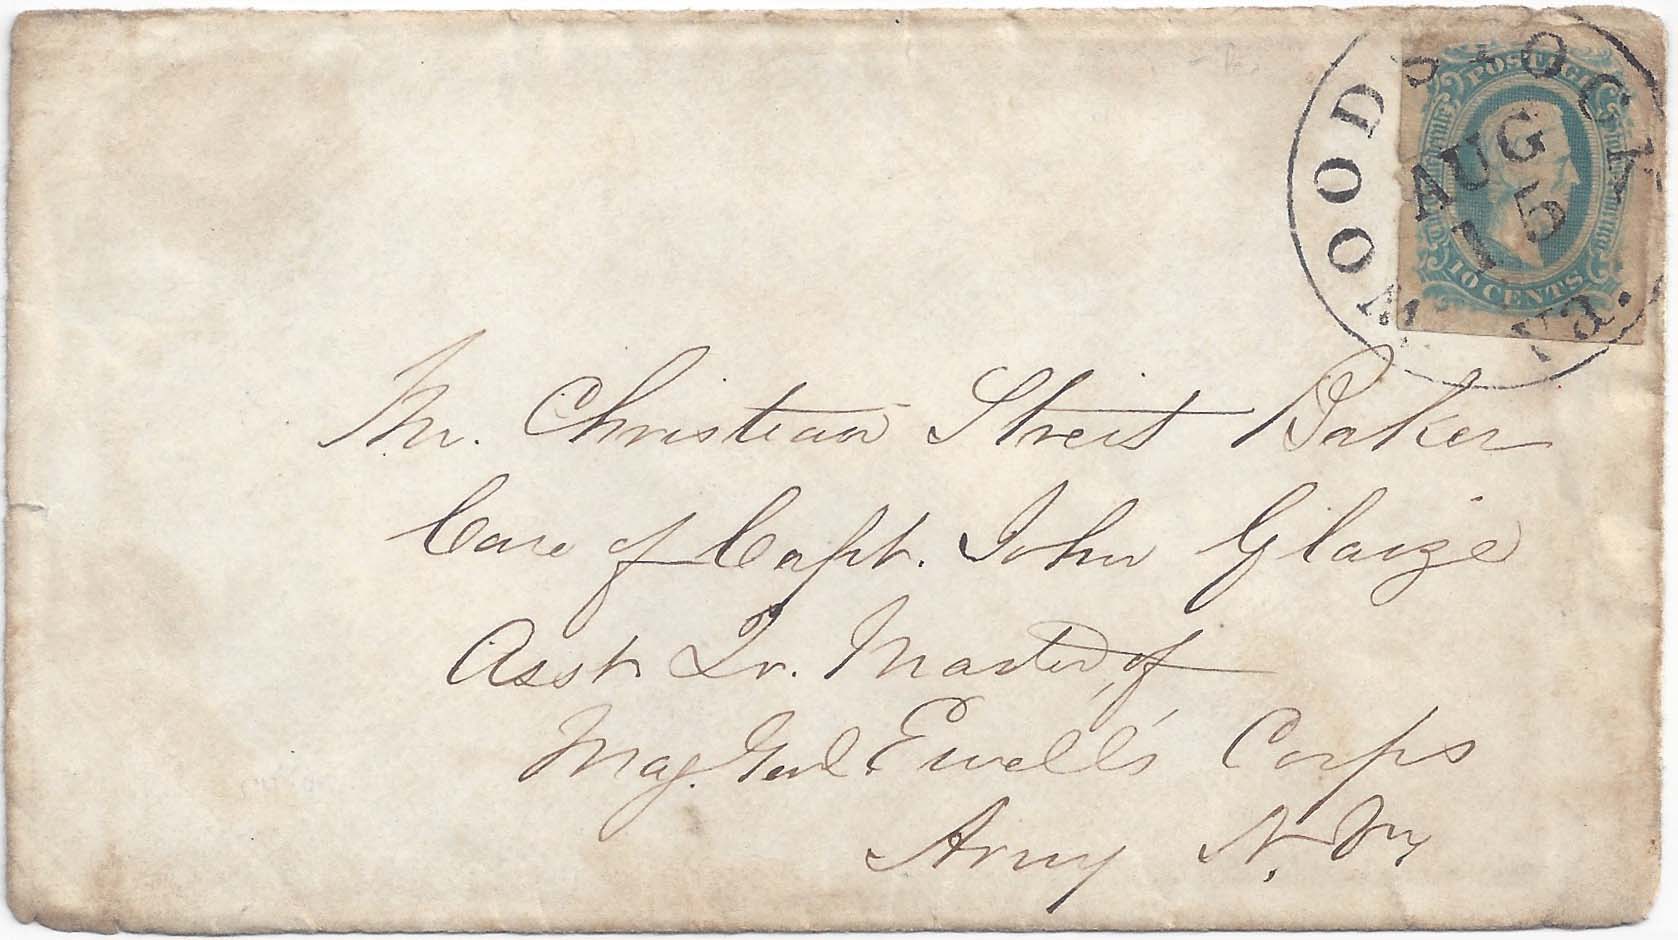 WOODSTOCK Va.
AUG
15
POSTAGE
10 CENTS
Mr. Christian Streit Baker
Care of Capt. John Glaize
Asst Qr. Master, of
Maj. Genl Ewell's Corps
Army N. Va